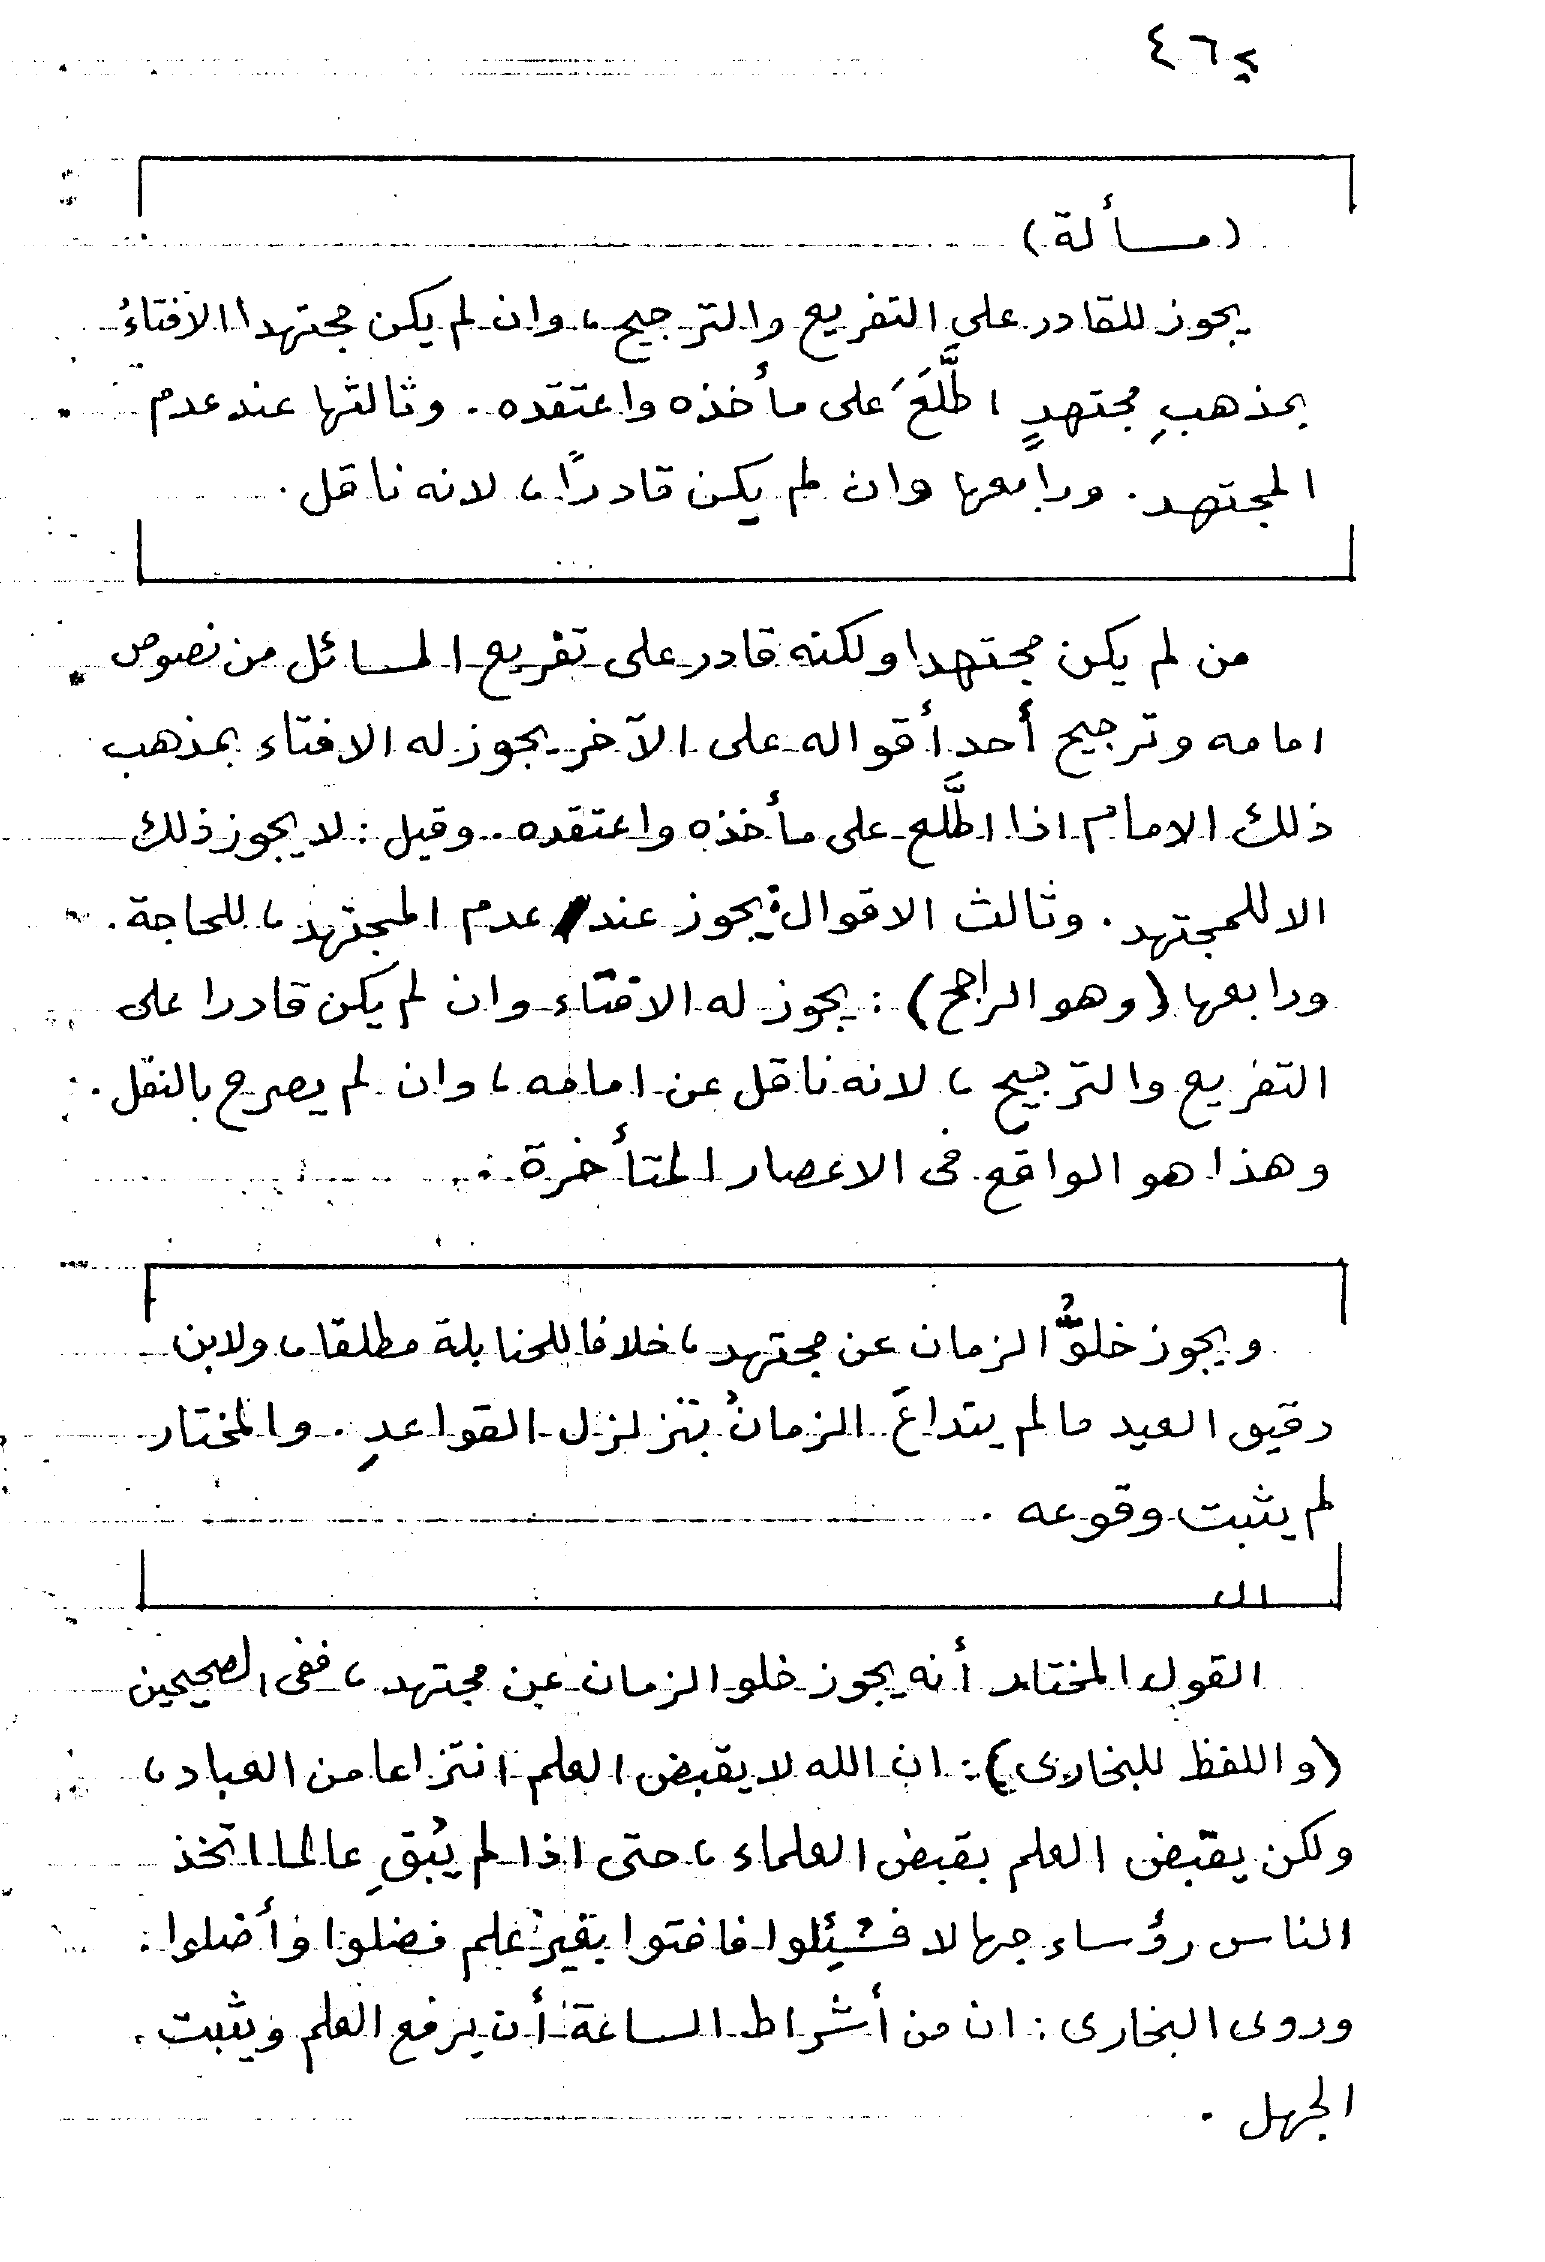 ٤٦
(مسألة)
يجوز للقادر على التفريع والترجيح، وان لم يكن مجتهدا الافتاءُ
بمذهبِ مجتهدٍ اطَّلَعَ على مأخذه واعتقده. وثالثها عند عدم
المجتهد. ورابعها وان لم يكن قادرًا، لانه ناقل.
من لم يكن مجتهدا ولكنه قادر على تفريع المسائل من نصوص
امامه وترجيح أحد أقواله على الآخر يجوز له الافتاء بمذهب
ذلك الامام اذا اطَّلع على مأخذه واعتقده. وقيل: لا يجوز ذلك
الا للمجتهد. وثالث الاقوال: يجوز عند عدم المجتهد، للحاجة.
ورابعها (وهو الراجح): يجوز له الافتاء وان لم يكن قادرا على
التفريع والترجيح، لانه ناقل عن امامه، وان لم يصرح بالنقل.
وهذا هو الواقع فى الاعصار المتأخرة.
ويجوز خلوُّ الزمان عن مجتهد، خلافا للحنابلة مطلقا، ولابن
دقيق العيد ما لم يتداعَ الزمانُ بتزلزل القواعدِ. والمختار
لم يثبت وقوعه.
القول المختار أنه يجوز خلو الزمان عن مجتهد، ففى الصحيحين
(واللفظ للبخارى): ان الله لا يقبض العلم انتزاعا من العباد،
ولكن يقبض العلم بقبض العلماء، حتى اذا لم يُبقِ عالما اتخذ
الناس رؤساء جهالا فسُئِلوا فافتوا بغير علم فضلوا وأضلوا.
وروى البخارى: ان من أشراط الساعة أن يرفع العلم ويثبت
الجهل.